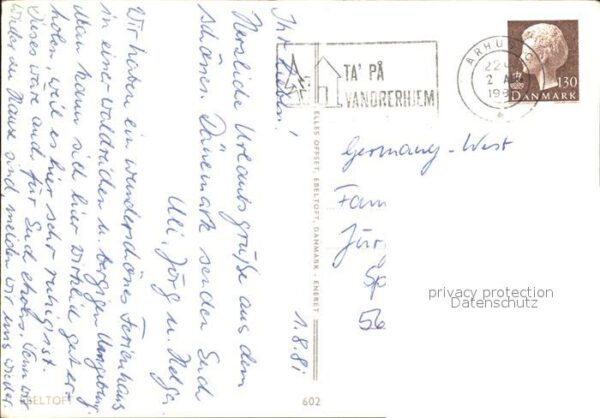 Ihr Lieben!
Herzliche Urlaubsgrüße aus dem
schönen Dänemark senden Euch
Uli, Jörg u. Helga.
Wir haben ein wunderschönes Ferienhaus
in einer waldreichen u. bergigen Umgebung.
Man kann sich hier wirklich gut er-
holen, weil es hier sehr ruhig ist.
Dieses wäre auch für Euch etwas. Wenn wir
wieder zu Hause sind, melden wir uns wieder.
1.8.81
EBELTOFT
602
ELLES OFFSET, EBELTOFT, DANMARK - ENERET
TA' PÅ
VANDRERHJEM
ÅRHUS
2
130
DANMARK
Germany-West
Fam
Jür
Sp
56
privacy protection
Datenschutz